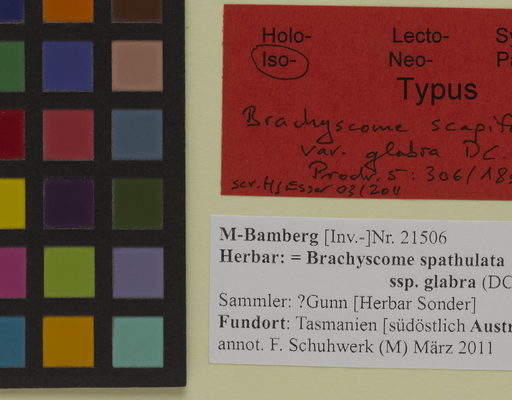 Holo- Lecto- Sy
Iso- Neo- Pa
Typus
Brachyscome scapif
var. glabra DC.
Prodr. 5: 306/183
scr. HJ Esser 03/2011
M-Bamberg [Inv.-]Nr. 21506
Herbar: = Brachyscome spathulata
ssp. glabra (DC
Sammler: ?Gunn [Herbar Sonder]
Fundort: Tasmanien [südöstlich Austr
annot. F. Schuhwerk (M) März 2011